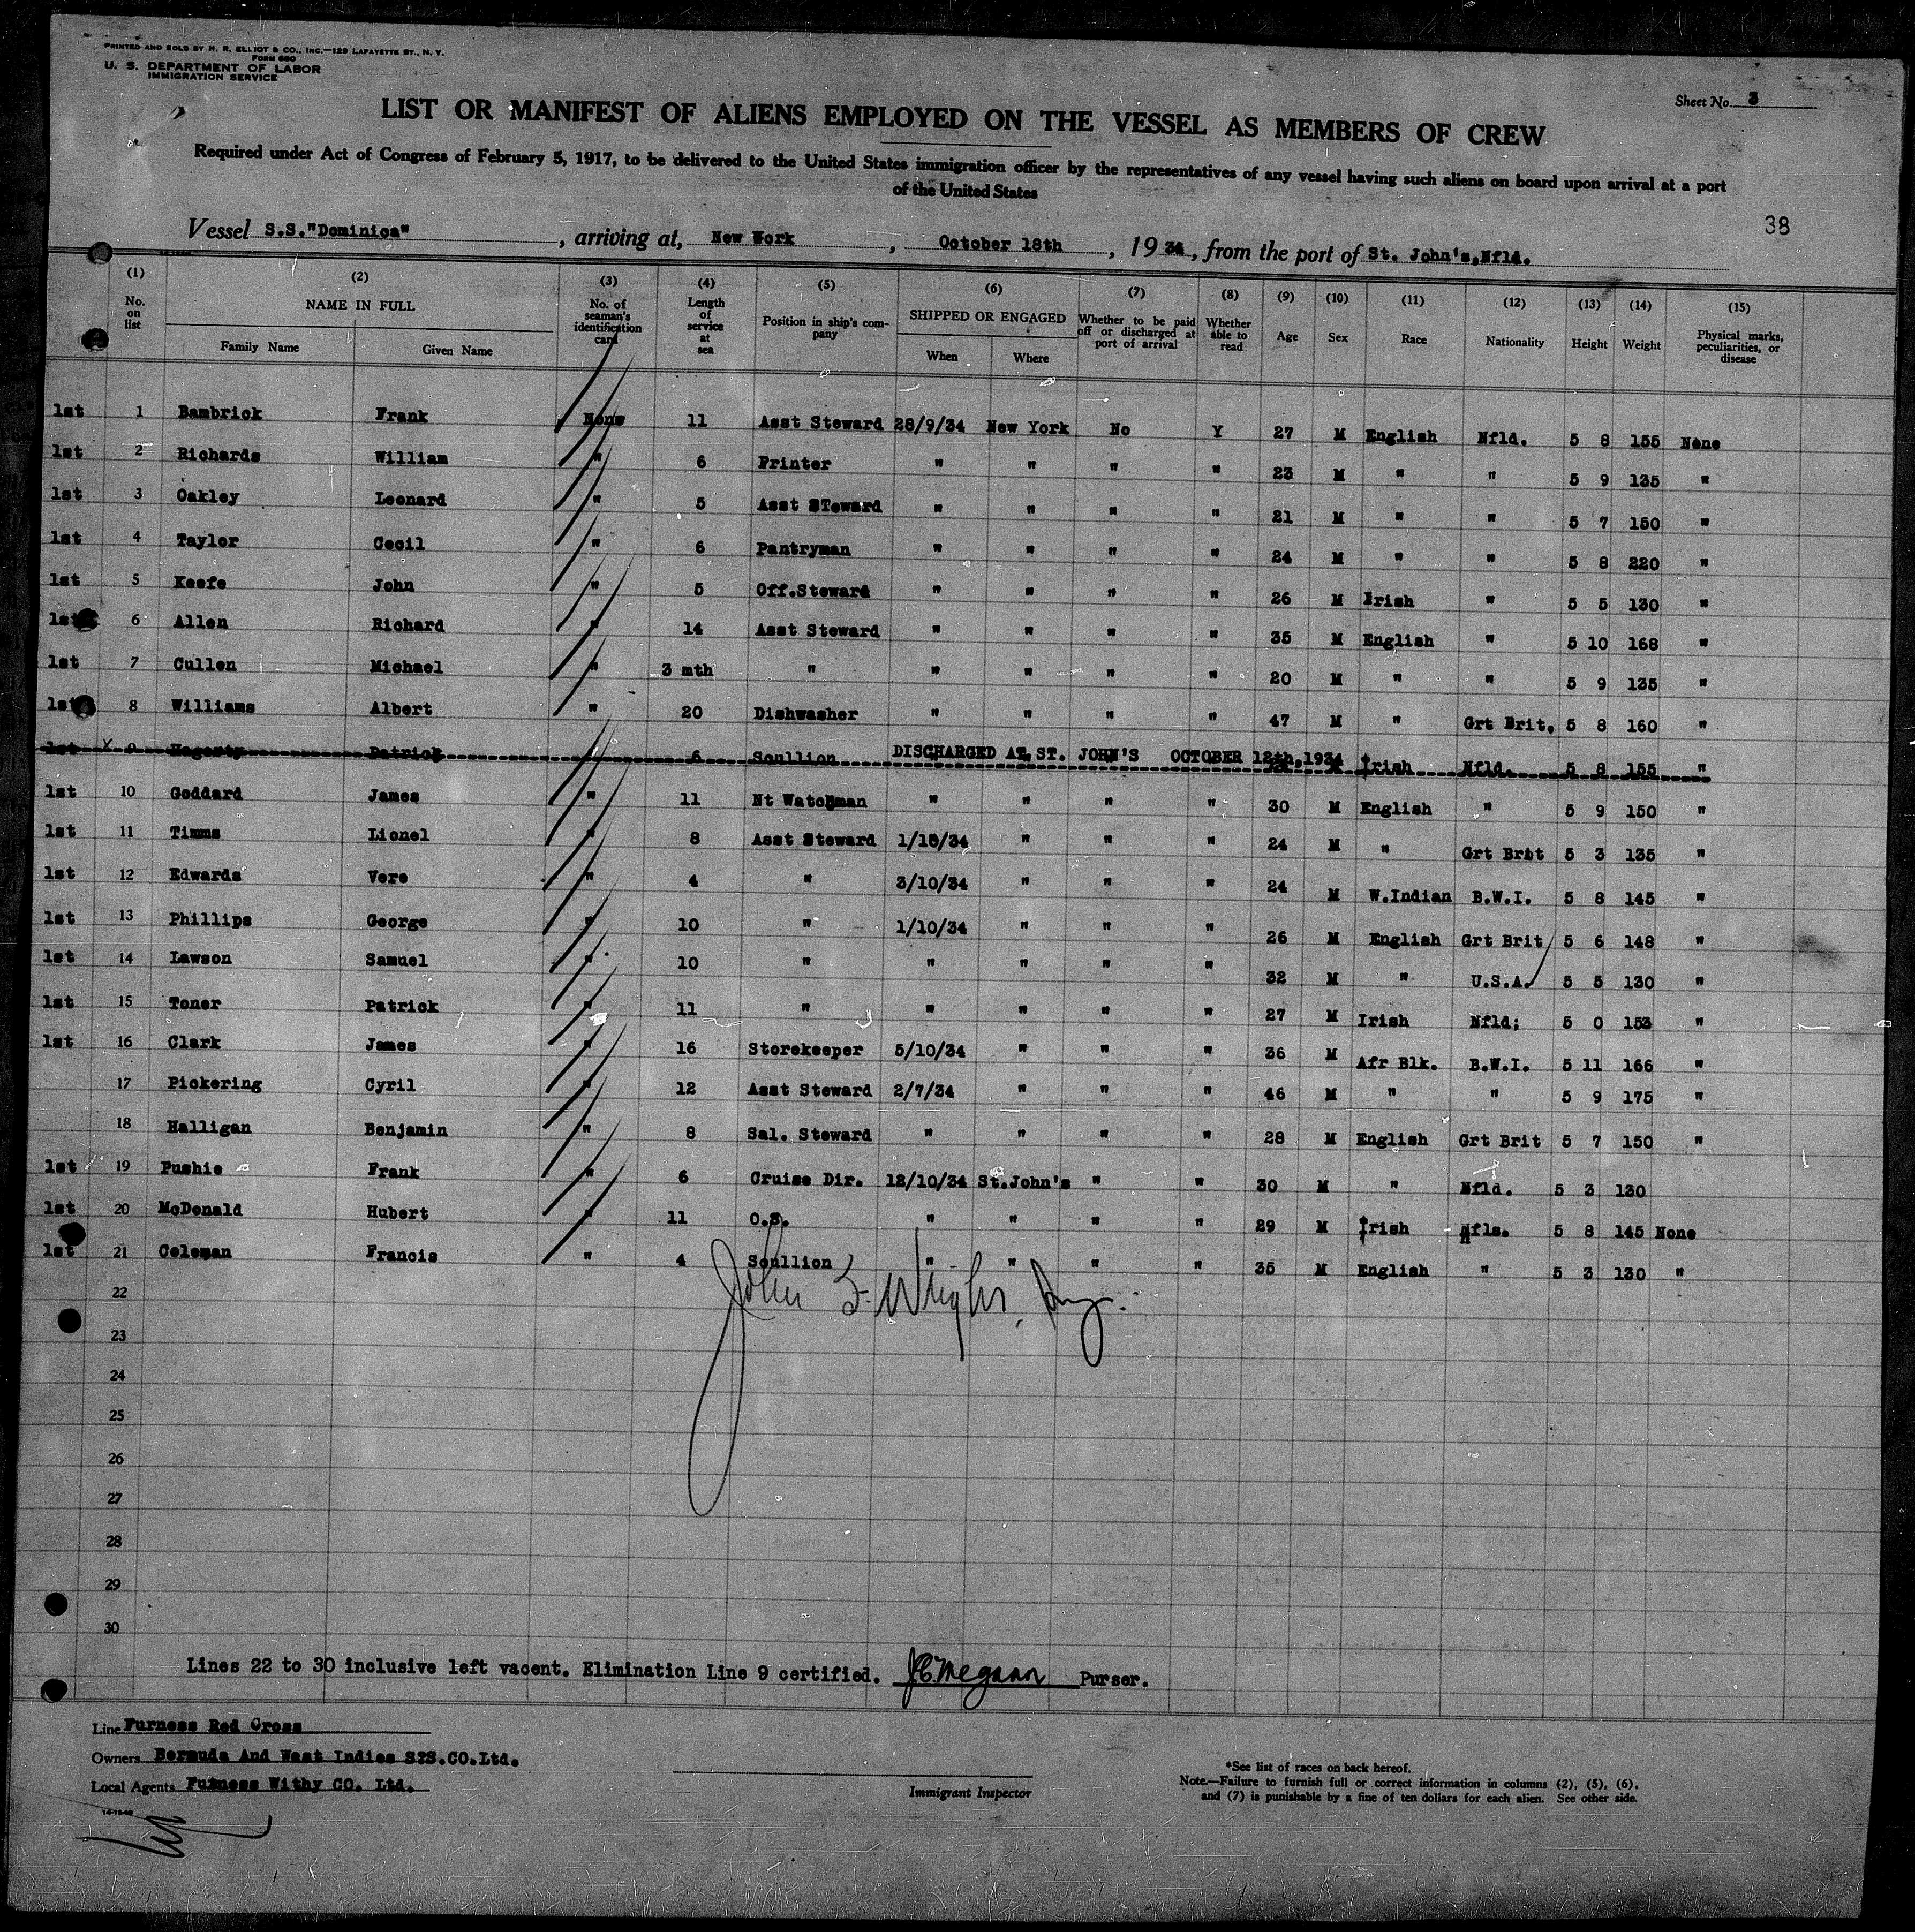 PRINTED AND SOLD BY H. R. ELLIOT & CO., INC.—129 LAFAYETTE ST., N. Y.
FORM 680
U. S. DEPARTMENT OF LABOR
IMMIGRATION SERVICE
Sheet No. 3
LIST OR MANIFEST OF ALIENS EMPLOYED ON THE VESSEL AS MEMBERS OF CREW
Required under Act of Congress of February 5, 1917, to be delivered to the United States immigration officer by the representatives of any vessel having such aliens on board upon arrival at a port
of the United States
38
Vessel S.S."Dominica", arriving at, New York, October 18th, 1934, from the port of St. John's,Nfld.
(1) (2) (3) (4) (5) (6) (7) (8) (9) (10) (11) (12) (13) (14) (15)
No. on list NAME IN FULL Family Name Given Name No. of seaman's identification card Length of service at sea Position in ship's company SHIPPED OR ENGAGED When Where Whether to be paid off or discharged at port of arrival Whether able to read Age Sex Race Nationality Height Weight Physical marks, peculiarities, or disease
1st 1 Bambrick Frank None 11 Asst Steward 28/9/34 New York No Y 27 M English Nfld. 5 8 155 None
1st 2 Richards William " 6 Printer " " " " 23 M " " 5 9 135 "
1st 3 Oakley Leonard " 5 Asst STeward " " " " 21 M " " 5 7 150 "
1st 4 Taylor Cecil " 6 Pantryman " " " " 24 M " " 5 8 220 "
1st 5 Keefe John " 5 Off.Steward " " " " 26 M Irish " 5 5 130 "
1st 6 Allen Richard " 14 Asst Steward " " " " 35 M English " 5 10 168 "
1st 7 Cullen Michael " 3 mth " " " " " 20 M " " 5 9 135 "
1st 8 Williams Albert " 20 Dishwasher " " " " 47 M " Grt Brit, 5 8 160 "
1st X 9 Hagerty Patrick 6 Scullion DISCHARGED AT ST. JOHN'S OCTOBER 12th,1934 M Irish Nfld. 5 8 155 "
1st 10 Goddard James " 11 Nt Watchman " " " " 30 M English " 5 9 150 "
1st 11 Timms Lionel " 8 Asst Steward 1/10/34 " " " 24 M " Grt Brit 5 3 135 "
1st 12 Edwards Vere " 4 " 3/10/34 " " " 24 M W.Indian B.W.I. 5 8 145 "
1st 13 Phillips George " 10 " 1/10/34 " " " 26 M English Grt Brit 5 6 148 "
1st 14 Lawson Samuel " 10 " " " " " 32 M " U.S.A. 5 5 130 "
1st 15 Toner Patrick " 11 " " " " " 27 M Irish Nfld; 5 0 153 "
1st 16 Clark James " 16 Storekeeper 5/10/34 " " " 36 M Afr Blk. B.W.I. 5 11 166 "
17 Pickering Cyril " 12 Asst Steward 2/7/34 " " " 46 M " " 5 9 175 "
18 Halligan Benjamin " 8 Sal. Steward " " " " 28 M English Grt Brit 5 7 150 "
1st 19 Pushie Frank " 6 Cruise Dir. 12/10/34 St.John's " " 30 M " Nfld. 5 3 130
1st 20 McDonald Hubert " 11 O.S. " " " " 29 M Irish Nfls. 5 8 145 None
1st 21 Coleman Francis " 4 Scullion " " " " 35 M English " 5 3 130 "
22
John Wright,
23
24
25
26
27
28
29
30
Lines 22 to 30 inclusive left vacent. Elimination Line 9 certified. J.C. Megann Purser.
Line Furness Red Cross
Owners Bermuda And West Indies SPS.CO.Ltd.
Local Agents Furness Withy CO. Ltd.
14-1240
Immigrant Inspector
*See list of races on back hereof.
Note.—Failure to furnish full or correct information in columns (2), (5), (6),
and (7) is punishable by a fine of ten dollars for each alien. See other side.